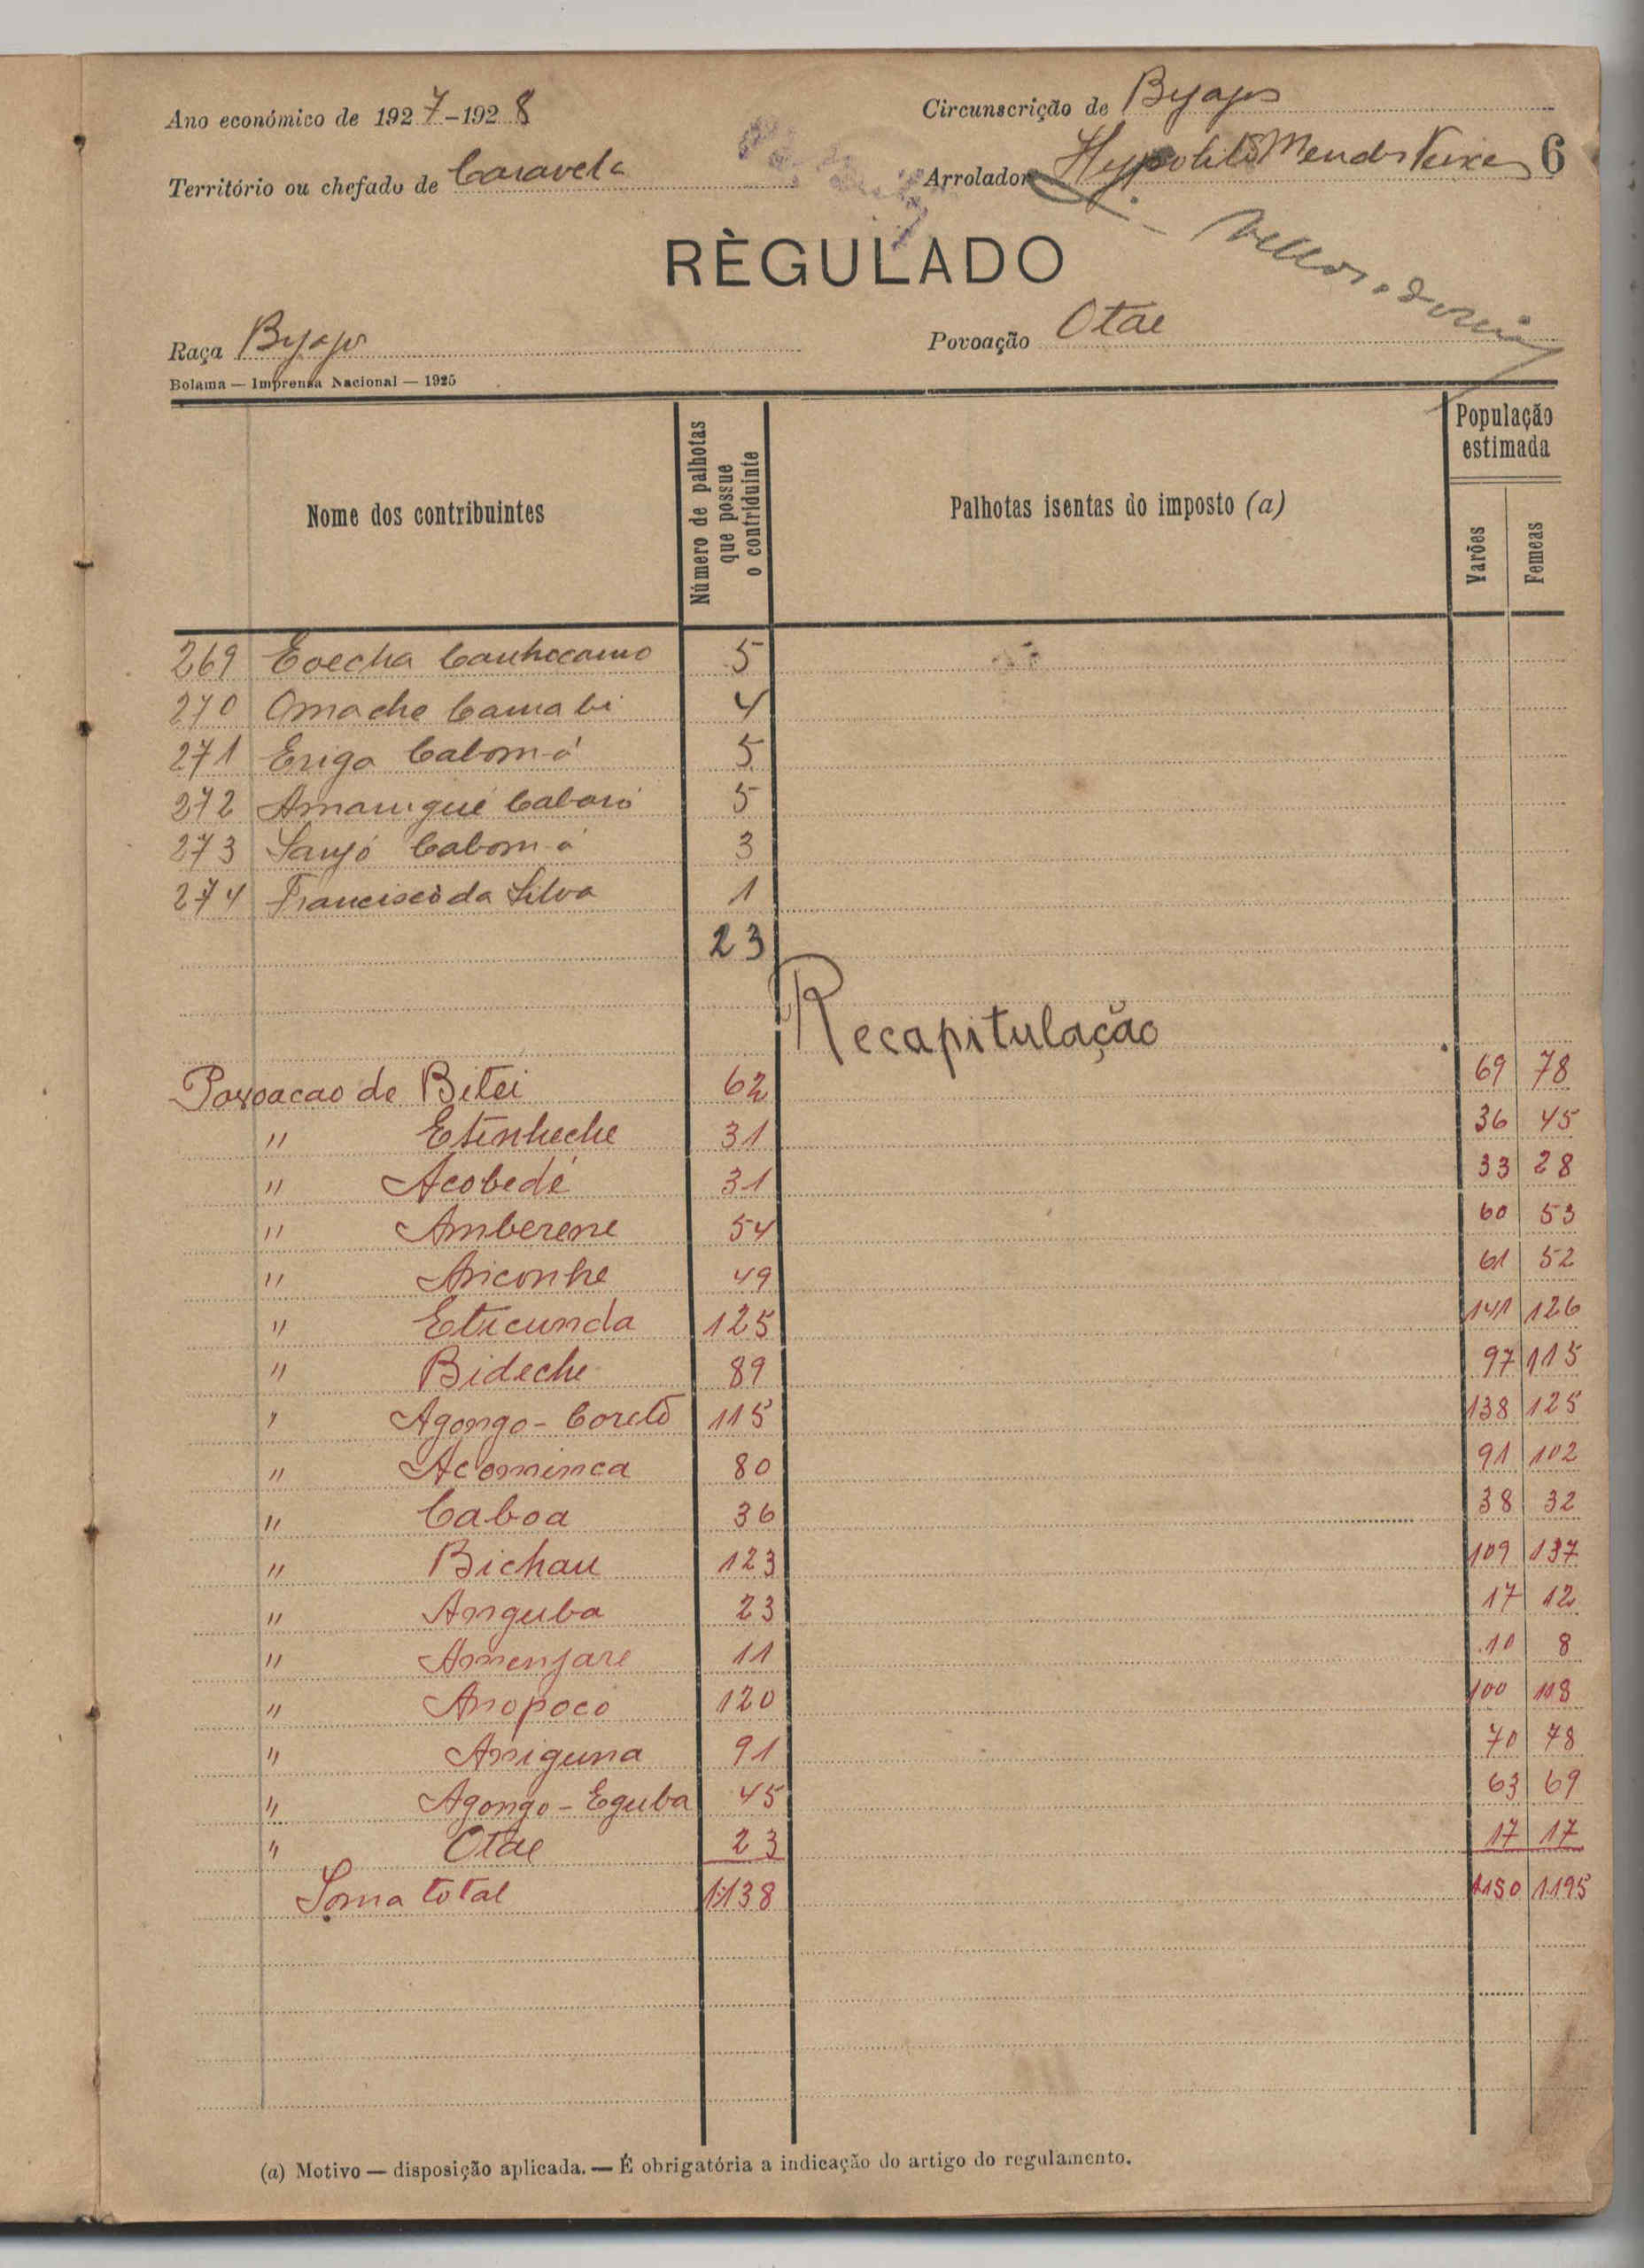 Ano económico de 1927-1928
Circunscrição de Byagos
6
Território ou chefado de Caravela
Arrolador Hypolito Mendes
RÈGULADO
Raça Byagos
Povoação Otae
Bolama — Imprensa Nacional — 1925
Nome dos contribuintes
Número de palhotas que possue o contriduinte
Palhotas isentas do imposto (a)
População estimada
Varões Femeas
269 Eoecha Canhocamo 5
270 Omache Camabi 4
271 Eriga Cabom-á 5
272 Amanigué 5
273 Sanjó Cabom-á 3
274 Francisco da Silva 1
23
Recapitulação
Povoacao de Bitei 62 69 78
" Etinheche 31 36 45
" Acobedé 31 33 28
" Amberene 54 60 53
" Anconhe 49 61 52
" Eticunda 125 141 126
" Bideche 89 97 115
" Agongo-Coretó 115 138 125
" Acominca 80 91 102
" Caboa 36 38 32
" Bichau 123 109 137
" Anguba 23 17 12
" Amenjare 11 10 8
" Anopoco 120 100 118
" Aniguna 91 70 78
" Agongo-Eguba 45 63 69
" Otae 23 17 17
Soma total 1:138 1150 1.195
(a) Motivo — disposição aplicada. — É obrigatória a indicação do artigo do regulamento.